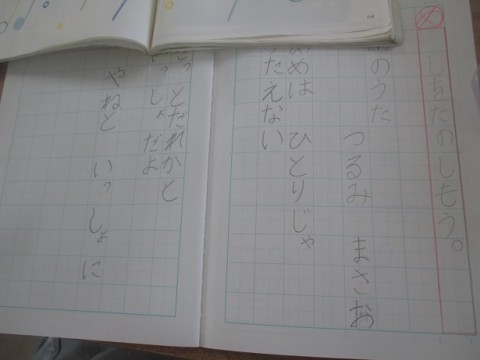 め たのしもう。
のうた
つるみ まさお
めは ひとりじゃ
たえない
っとだれかと
っしょだよ
やねと いっしょに